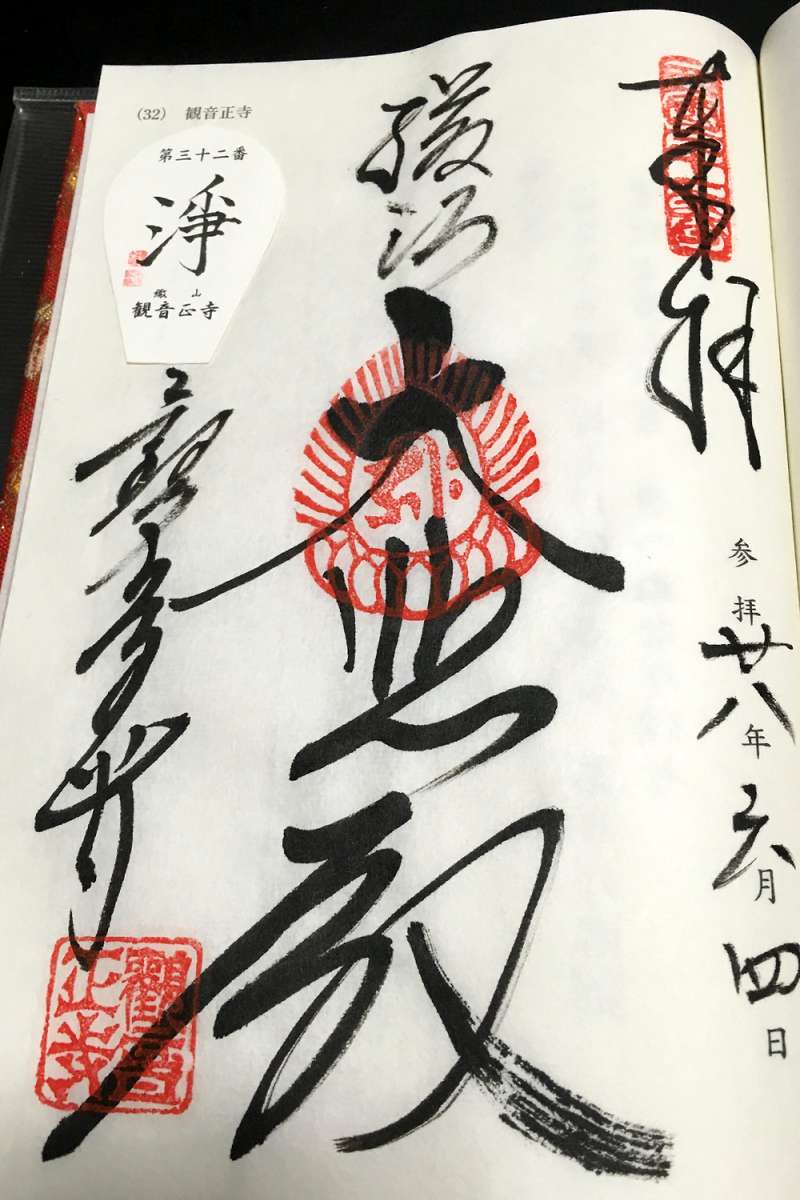 奉拝
参拝廿八年六月四日
大悲殿
(32) 観音正寺
第三十二番
淨
繖山
観音正寺
観音正寺
觀音正寺